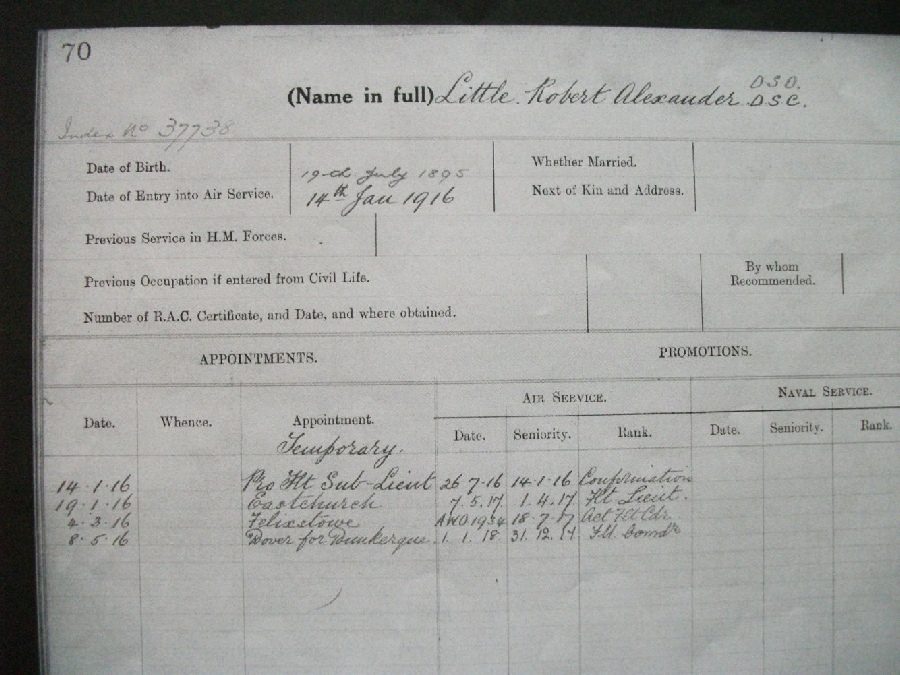 70
(Name in full) Little. Robert Alexander D.S.O. D.S.C.
Index No 37738
Date of Birth. 19th July 1895 Whether Married.
Date of Entry into Air Service. 14th Jan 1916 Next of Kin and Address.
Previous Service in H.M. Forces.
Previous Occupation if entered from Civil Life. By whom Recommended.
Number of R.A.C. Certificate, and Date, and where obtained.
APPOINTMENTS. PROMOTIONS.
AIR SERVICE. NAVAL SERVICE.
Date. Whence. Appointment. Date. Seniority. Rank. Date. Seniority. Rank.
Temporary.
14.1.16 Pro Flt Sub-Lieut 26 7.16 14.1.16 Confirmation
19.1.16 Eastchurch 7.5.17 1.4.17 Flt Lieut.
4.3.16 Felixstowe AWO 1954 18.7.17 Act Flt Cdr
8.5.16 Dover for Dunkerque. 1.1.18 31.12.17 Flt. Comdr